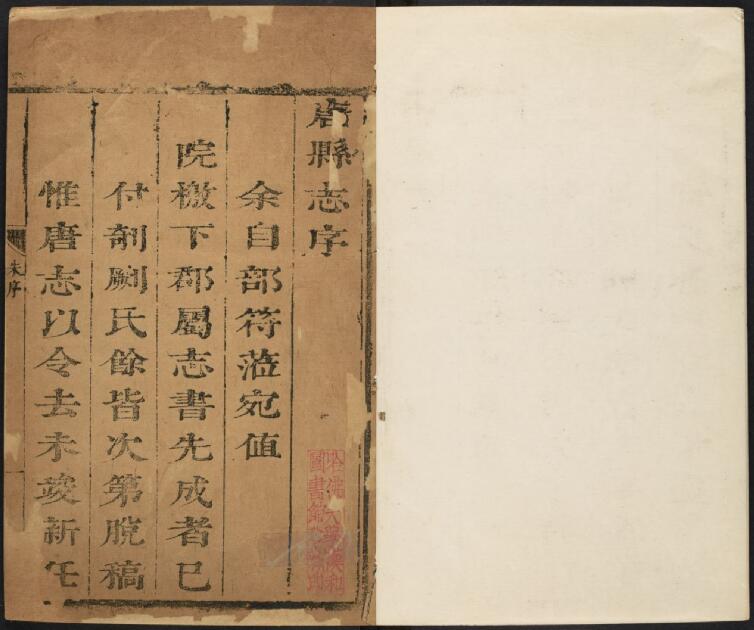 唐縣志序
余自部符蒞宛値
院檄下郡屬志書先成者已
付剞劂氏餘皆次第脫稿
惟唐志以令去未竣新任
朱序
哈佛大學漢和
圖書館珍藏印